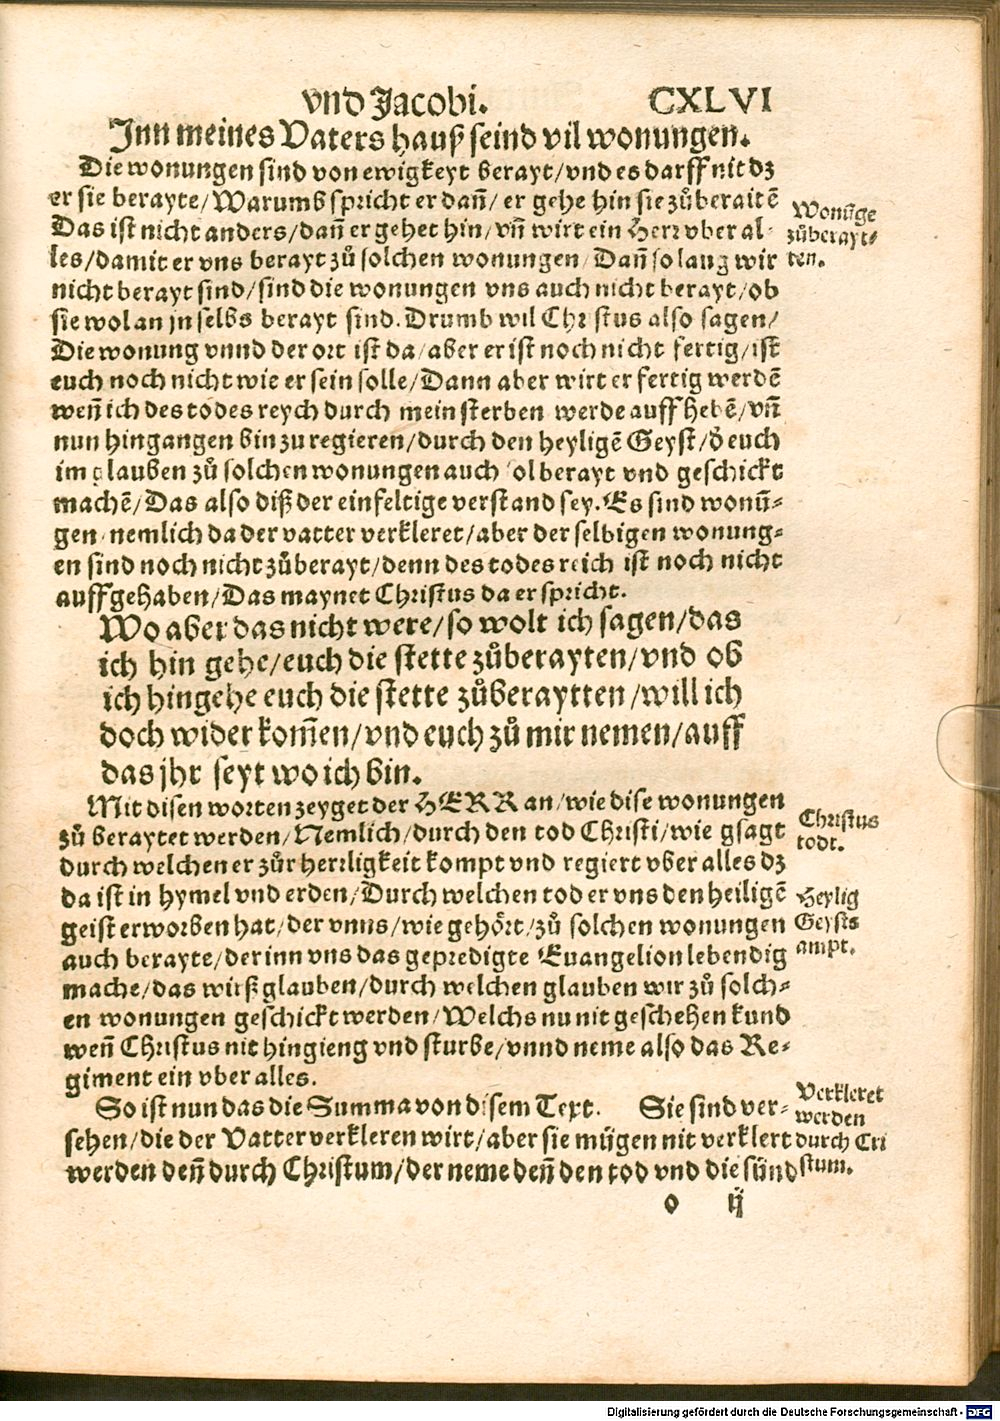 vnd Jacobi. CXLVI
Jnn meines Vaters hauß seind vil wonungen.
Die wonungen sind von ewigkeyt berayt/vnd es darff nit dz
er sie berayte/Warumb spricht er dañ/ er gehe hin sie zůberaitẽ
Das ist nicht anders/dañ er gehet hin/vñ wirt ein Herr vber al-
les/damit er vns berayt zů solchen wonungen/Dañ so lang wir
nicht berayt sind/sind die wonungen vns auch nicht berayt/ob
sie wol an jn selbs berayt sind. Drumb wil Christus also sagen/
Die wonung vnnd der ort ist da/aber er ist noch nicht fertig/ist
euch noch nicht wie er sein solle/Dann aber wirt er fertig werdẽ
weñ ich des todes reych durch mein sterben werde auff hebẽ/vñ
nun hingangen bin zu regieren/durch den heyligẽ Geyst/d̾ euch
im glauben zů solchen wonungen auch sol berayt vnd geschickt
machẽ/Das also diß der einfeltige verstand sey. Es sind wonũ-
gen/nemlich da der vatter verkleret/aber der selbigen wonung-
en sind noch nicht zůberayt/denn des todes reich ist noch nicht
auffgehaben/Das maynet Christus da er spricht.
Wo aber das nicht were/so wolt ich sagen/das
ich hin gehe/euch die stette zůberayten/vnd ob
ich hingehe euch die stette zůberaytten/will ich
doch wider kom̃en/vnd euch zů mir nemen/auff
das jhr seyt wo ich bin.
Mit disen worten zeyget der HERR an/wie dise wonungen
zů beraytet werden/Nemlich/durch den tod Christi/wie gsagt
durch welchen er zůr herrligkeit kompt vnd regiert vber alles dz
da ist in hymel vnd erden/Durch welchen tod er vns den heiligẽ
geist erworben hat/der vnns/wie gehört/zů solchen wonungen
auch berayte/der inn vns das gepredigte Euangelion lebendig
mache/das wirß glauben/durch welchen glauben wir zů solch-
en wonungen geschickt werden/Welchs nu nit geschehen kund
weñ Christus nit hingieng vnd sturbe/vnnd neme also das Re-
giment ein vber alles.
So ist nun das die Summa von disem Text. Sie sind ver-
sehen/die der Vatter verkleren wirt/aber sie mügen nit verklert
werden deñ durch Christum/der neme deñ den tod vnd die sünd
o ij
Wonũge
zůberayt-
ten.
Christus
todt.
Heylig
Geysts
ampt.
Verkleret
werden
durch Cri
stum.
Digitalisierung gefördert durch die Deutsche Forschungsgemeinschaft - DFG